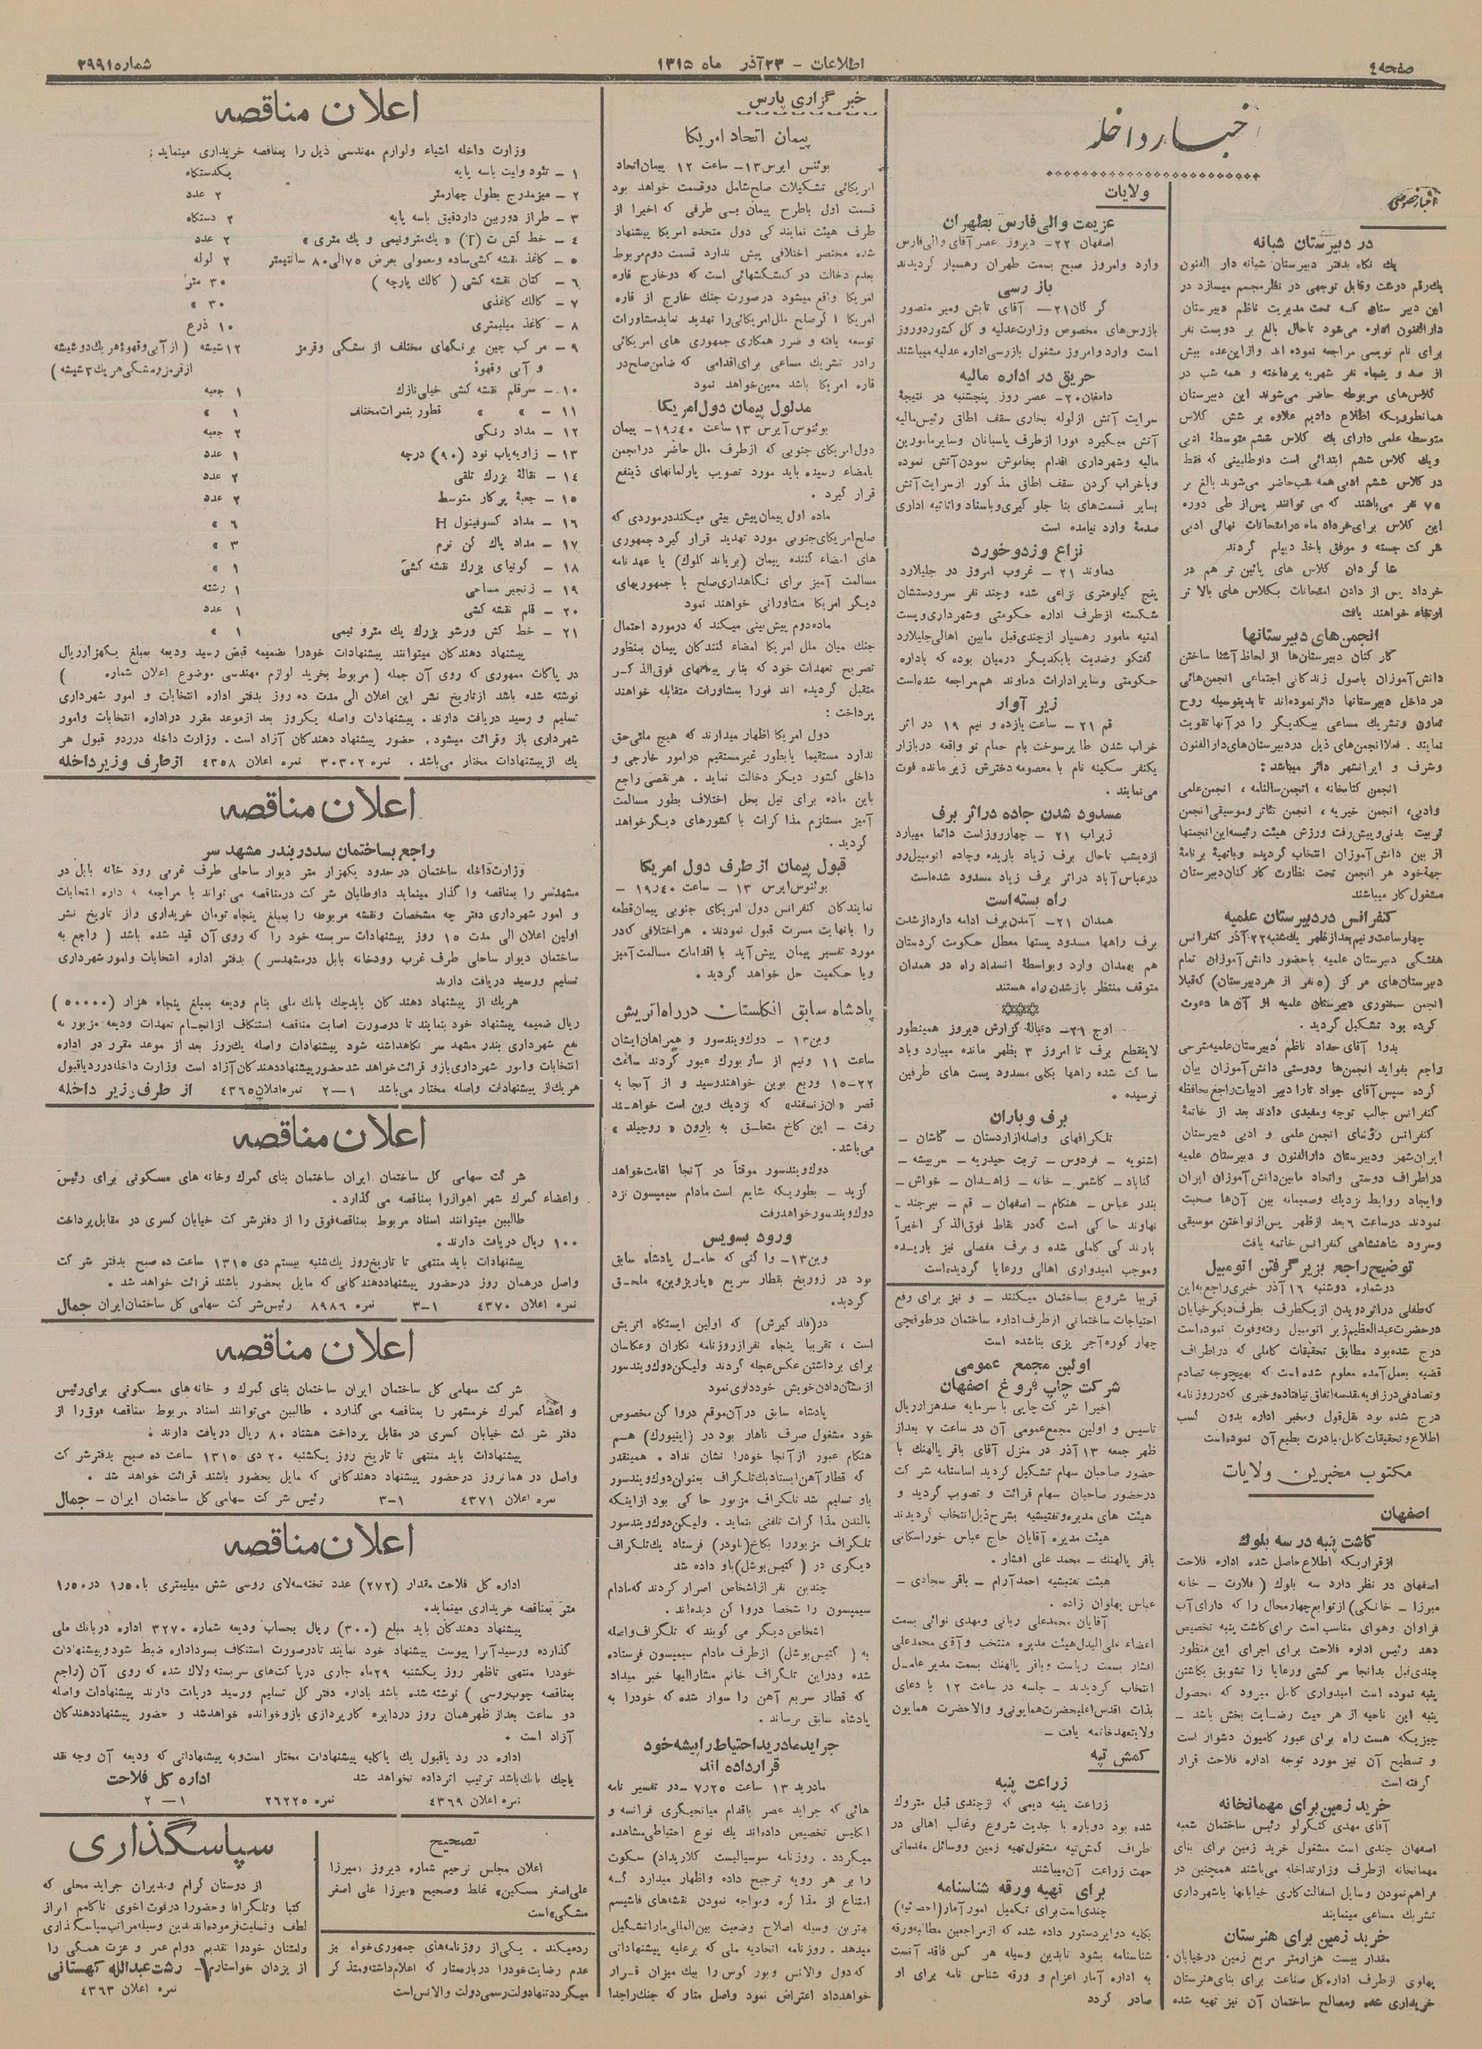 صفحه ٤
اطلاعات – ٢٣ آذر ماه ١٣١٥
شماره ٢٩٩١
اخبار داخله
اخبار خصوصی
در دبیرستان شبانه
یك نگاه بدفتر دبیرستان شبانه دار الفنون
یك‌رقم درشت وقابل توجهی در نظر مجسم میسازد در
این دبیر ستان که تحت مدیریت ناظم دبیرستان
دارالفنون اداره می‌شود تاحال بالغ بر دویست نفر
برای نام نویسی مراجعه نموده اند وازاین‌عده بیش
از صد و پنجاه نفر شهریه پرداخته و همه شب در
کلاس‌های مربوطه حاضر می‌شوند این دبیرستان
همانطوریکه اطلاع دادیم علاوه بر شش کلاس
متوسطه علمی دارای یك کلاس ششم متوسطهٔ ادبی
ویك کلاس ششم ابتدائی است داوطلبینی که فقط
در کلاس ششم ادبی همه شب حاضر می‌شوند بالغ بر
٧٥ نفر می‌باشند که می توانند پس‌از طی دوره
این کلاس برای‌خرداد ماه درامتحانات نهائی ادبی
شر کت جسته و موفق باخذ دیپلم گردند
شا گردان کلاس های پائین تر هم در
خرداد پس از دادن امتحانات بکلاس های بالا تر
ارتقاء خواهند یافت
انجمن‌های دبیرستانها
کار کنان دبیرستان‌ها از لحاظ آشنا ساختن
دانش‌آموزان باصول زندگانی اجتماعی انجمن‌هائی
در داخل دبیرستانها دائر نموده‌اند تا بدینوسیله روح
تعاون وتشریك مساعی بیکدیگر را در آنها تقویت
نمایند . فعلا انجمن‌های ذیل دردبیرستان‌های‌دارالفنون
وشرف و ایرانشهر دائر میباشد :
انجمن کتابخانه ، انجمن سالنامه ، انجمن‌علمی
وادبی، انجمن خیریه ، انجمن تئاتر وموسیقی انجمن
تربیت بدنی وپیش‌رفت ورزش هیئت رئیسه این‌انجمنها
از بین دانش‌آموزان انتخاب گردیده وباتهیهٔ برنامهٔ
جههٔ‌خود هر انجمن تحت نظارت کار کنان‌دبیرستان
مشغول‌کار میباشند
کنفرانس دردبیرستان علمیه
چهارساعت‌ونیم‌بعدازظهر یك‌شنبه٢٢آذر کنفرانس
هفتگی دبیرستان علمیه باحضور دانش‌آموزان تمام
دبیرستان‌های مر کز (٥نفر از هر دبیرستان) که‌قبلا
انجمن سخنوری دبیرستان علمیه از آن‌ها دعوت
کرده بود تشکیل گردید .
بدوا آقای حداد ناظم دبیرستان‌علمیه‌شرحی
راجع بفواید انجمن‌ها ودوستی دانش‌آموزان بیان
کرده سپس‌آقای جواد تارا دبیر ادبیات‌راجع‌بحافظه
کنفرانس جالب توجه ومفیدی دادند بعد از خاتمهٔ
کنفرانس رؤسای انجمن علمی و ادبی دبیرستان
ایران‌شهر ودبیرستان دارالفنون و دبیرستان علمیه
دراطراف دوستی واتحاد مابین‌دانش‌آموزان ایران
وایجاد روابط نزدیك وصمیمانه بین آن‌ها صحبت
نمودند درساعت ٦ بعد ازظهر پس‌ازنواختن موسیقی
وسرود شاهنشاهی کنفرانس خاتمه یافت
توضیح راجع بزیر گرفتن اتومبیل
درشماره دوشنبه ١٦ آذر خبری راجع به این
که‌طفلی دراثردویدن ازیکطرف بطرف دیگرخیابان
درحضرت‌عبدالعظیم‌زیر اتومبیل رفته‌وفوت نموده‌است
درج شده‌بود مطابق تحقیقات کاملی که دراطراف
قضیه بعمل‌آمده معلوم شده‌است که بهیچوجه تصادم
وتصادفی‌درزاویه‌مقدسه‌اتفاق نیافتاده‌وخبری که‌درروزنامه
درج شده بود نقل‌قول ومخبر اداره بدون کسب
اطلاع وتحقیقات کامل،مبادرت بطبع آن نموده‌است
مکتوب مخبرین ولایات
اصفهان
کاشت پنبه در سه بلوك
ازقراریکه اطلاع حاصل شده اداره فلاحت
اصفهان در نظر دارد سه بلوك ( فلارت – خانه
میرزا – خانگی) ازتوابع چهارمحال را که دارای آب
فراوان وهوای مناسب است برای‌کاشت پنبه تخصیص
دهد رئیس اداره فلاحت برای اجرای این منظور
چندی‌قبل بدانجا سر کشی ورعایا را تشویق بکاشتن
پنبه نموده است امیدواری کامل میرود که محصول
پنبه این ناحیه از هر حیث رضایت بخش باشد –
چیزیکه هست راه برای عبور کامیون دشوار است
و تسطیح آن نیز مورد توجه اداره فلاحت قرار
گرفته است
خرید زمین برای مهمانخانه
آقای مهدی کنگرلو رئیس ساختمان شعبه
اصفهان چندی است مشغول خرید زمین برای بنای
مهمانخانه ازطرف وزارتداخله می‌باشند همچنین در
فراهم‌نمودن وسایل اسفالت‌کاری خیابانها باشهرداری
تشریك مساعی مینمایند
خرید زمین برای هنرستان
مقدار بیست هزارمتر مربع زمین درخیابان
پهلوی ازطرف اداره‌کل صناعت برای بنای‌هنرستان
خریداری شده ومصالح ساختمان آن نیز تهیه شده
ولایات
عزیمت والی فارس بطهران
اصفهان ٢٢– دیروز عصر آقای والی‌فارس
وارد وامروز صبح بسمت طهران رهسپار گردیدند
باز رسی
گر گان٢١ – آقای تابش ومیر منصور
بازرس‌های مخصوص وزارت‌عدلیه و کل کشوردوروز
است وارد وامروز مشغول بازرسی‌اداره عدلیه میباشند
حریق در اداره مالیه
دامغان٢٠– عصر روز پنجشنبه در نتیجهٔ
سرایت آتش ازلوله بخاری سقف اطاق رئیس‌مالیه
آتش میگیرد فورا ازطرف پاسبانان وسایرمامورین
مالیه وشهرداری اقدام بخاموش نمودن‌آتش نموده
وباخراب کردن سقف اطاق مذ کور ازسرایت‌آتش
بسایر قسمت‌های بنا جلو گیری‌وباسناد واثاثیه اداری
صدمهٔ وارد نیامده است
نزاع وزدوخورد
دماوند ٢١ – غروب امروز در جلیلارد
پنج کیلومتری نزاعی شده وچند نفر سرودستشان
شکسته ازطرف اداره حکومتی وشهرداری‌وپست
امنیه مامور رهسپار ازچندی‌قبل مابین اهالی‌جلیلارد
گفتگو وضدیت بایکدیگر درمیان بوده که باداره
حکومتی وسایرادارات دماوند هم مراجعه شده‌است
زیر آوار
قم ٢١ – ساعت یازده و نیم ١٩ در اثر
خراب شدن طا پرسوخت بام حمام نو واقعه دربازار
یکنفر سکینه نام با معصومه دخترش زیر مانده فوت
می‌نمایند .
مسدود شدن جاده در اثر برف
زیراب ٢١ – چهار روز است دائما میبارد
ازدیشب تاحال برف زیاد باریده وجاده اتومبیل‌رو
درعباس‌آباد دراثر برف زیاد مسدود شده‌است
راه بسته‌است
همدان ٢١– آمدن‌برف ادامه دارد از شدت
برف راهها مسدود پستها معطل حکومت کردستان
هم بهمدان وارد وبواسطهٔ انسداد راه در همدان
متوقف منتظر باز شدن‌راه هستند
اوج ٢١– دنبالهٔ گزارش دیروز همینطور
لاینقطع برف تا امروز ٣ بظهر مانده میبارد وباد
سا کت شده راهها بکلی مسدود پست های طرفین
نرسیده .
برف وباران
تلگرافهای واصله‌ازاردستان – کاشان –
اشنویه – فردوس – تربت حیدریه – سربیشه –
گناباد – کاشمر – خانه – زاهدان – خواش –
بندر عباس – هنگام – اصفهان – قم – بیرجند –
نهاوند حا کی است که‌در نقاط فوق‌الذ کر اخیرا
بارند گی کاملی شده و برف مفصلی نیز باریده
وموجب امیدواری اهالی ورعایا گردیده‌است
قریبا شروع بساختمان میکنند – و نیز برای رفع
احتیاجات ساختمانی ازطرف‌اداره ساختمان درطوقچی
چهار کوره‌آجر پزی بناشده است
اولین مجمع عمومی
شرکت چاپ فروغ اصفهان
اخیرا شر کت چاپی با سرمایه صدهزارریال
تاسیس و اولین مجمع‌عمومی آن در ساعت ٧ بعداز
ظهر جمعه ١٣ آذر در منزل آقای باقر پالهنك با
حضور صاحبان سهام تشکیل گردید اساسنامه شر کت
درحضور صاحبان سهام قرائت و تصویب گردید و
هیئت های مدیره وتفتیشیه بشرح ذیل‌انتخاب گردیدند
هیئت مدیره آقایان حاج عباس خوراسکانی
باقر پالهنك – محمد علی افشار .
هیئت تفتیشیه احمدآرام – باقر سجادی –
عباس پهلوان زاده .
آقایان محمدعلی ربانی ومهدی نوائی بسمت
اعضاء علی‌البدل‌هیئت مدیره منتخب وآقای محمدعلی
افشار بسمت ریاست وباقر پالهنك بسمت مدیر عامل
انتخاب گردیدند – جلسه در ساعت ١٢ با دعای
بذات اقدس اعلیحضرت‌همایونی‌و والاحضرت همایون
ولایتعهد خاتمه یافت –
کمش تپه
زراعت پنبه
زراعت پنبه دیمی که ازچندی قبل متروك
شده بود دوباره با جدیت شروع وغالب اهالی در
اطراف کمش‌تپه مشغول‌تهیه زمین ووسائل مقدماتی
جهت زراعت آن‌میباشند
برای تهیه ورقه شناسنامه
چندی‌است‌برای تکمیل امورآمار(احصائیه)
بکلیه دوایردستور داده شده که ازمراجعین مطالبه‌ورقه
شناسنامه بشود تابدین وسیله هر کس فاقد آنست
به اداره آمار اعزام و ورقه شناس نامه برای او
صادر گردد
خبر گزاری پارس
پیمان اتحاد امریکا
بوئنس ایرس١٣– ساعت ١٢ پیمان‌اتحاد
امریکائی تشکیلات صلح‌شامل دوقسمت خواهد بود
قسمت اول باطرح پیمان بی طرفی که اخیرا از
طرف هیئت نمایند گی دول متحده امریکا پیشنهاد
شده مختصر اختلافی بیش ندارد قسمت دوم‌مربوط
بعدم دخالت در کشمکشهائی است که درخارج قاره
امریکا واقع میشود درصورت جنك خارج از قاره
امریکا اگرصلح ملل‌امریکائی‌را تهدید نمایدمشاورات
توسعه یافته و ضرر همکاری جمهوری های امریکائی
رادر تشریك مساعی برای‌اقدامی که ضامن‌صلح‌در
قاره امریکا باشد معین‌خواهد نمود
مدلول پیمان دول‌امریکا
بوئنوس‌آیرس ١٣ ساعت ١٩٫٤٠– پیمان
دول‌امریکای جنوبی که ازطرف ملل حاضر درانجمن
بامضاء رسیده باید مورد تصویب پارلمانهای ذینفع
قرار گیرد .
ماده اول پیمان‌پیش بینی میکنددرموردی که
صلح‌امریکای‌جنوبی مورد تهدید قرار گیرد جمهوری
های امضاء کننده پیمان (بریاند کلوك) یا عهدنامه
مسالمت آمیز برای نگاهداری‌صلح با جمهوریهای
دیگر امریکا مشاوراتی خواهند نمود
ماده‌دوم پیش‌بینی میکند که درمورد احتمال
جنك میان ملل امریکا امضاء کنندگان پیمان بمنظور
تصریح تعهدات خود که بنابر پیمانهای فوق‌الذ کر
متقبل گردیده اند فورا بمشاورات متقابله خواهند
پرداخت :
دول امریکا اظهار میدارند که هیچ ملتی‌حق
ندارد مستقیما یابطور غیرمستقیم درامور خارجی و
داخلی کشور دیگر دخالت نماید . هر نقصی راجع
باین ماده برای نیل بحل اختلاف بطور مسالمت
آمیز مستلزم مذا کرات با کشورهای دیگرخواهد
گردید .
قبول پیمان از طرف دول امریکا
بوئنوس‌ایرس ١٣ – ساعت ١٩٫٤٠ –
نمایندگان کنفرانس دول امریکای جنوبی پیمان‌قطعه
را بانهایت مسرت قبول نمودند . هراختلافی که‌در
مورد تفسیر پیمان پیش‌آید با اقدامات مسالمت‌آمیز
ویا حکمیت حل خواهد گردید .
پادشاه سابق انگلستان درراه‌اتریش
وین١٣ – دوك‌ویندسور و همراهان‌ایشان
ساعت ١١ ونیم از سارزبورك عبور گردند ساعت
١٥–٢٢ وربع بوین خواهندرسید و از آنجا به
قصر «ان‌زسفلد» که نزدیك وین است خواهند
رفت – این کاخ متعلق به بارون « روچیلد »
می‌باشد.
دوك‌ویندسور موقتاً در آنجا اقامت‌خواهد
گزید – بطوریکه شایع است مادام سیمپسون نزد
دوك‌ویندسور خواهد رفت
ورود بسویس
وین١٣– وا گنی که حامل پادشاه سابق
بود در زوریخ بقطار سریع «پاریزوین» ملحق
گردید.
در(فلد کیرش) که اولین ایستگاه اتریش
است ، تقریبا پنجاه نفرازروزنامه نگاران وعکاسان
برای برداشتن عکس‌عجله گردند ولیکن‌دوك‌ویندسور
ازنشان‌دادن‌خویش خودداری‌نمود
پادشاه سابق در آن‌موقع درواگن مخصوص
خود مشغول صرف ناهار بود در (اینبورك) هم
هنگام عبور ازآنجا خودرا نشان نداد . همینقدر
که قطارآهن‌ایستادیك‌تلگراف بعنوان‌دوك‌ویندسور
باو تسلیم شد تلگراف مزبور حا کی بود ازاینکه
بالندن مذا کرات تلفنی بنماید . ولیکن‌دوك‌ویندسور
تلگراف مزبوررا بکاخ(لودر) فرستاد یك‌تلگراف
دیگری در ( کتبس‌بوشل)باو داده شد
چندین نفر ازاشخاص اصرار کردند که‌مادام
سیمپسون را شخصا درواگن دیده‌اند .
اشخاص دیگر می گویند که تلگراف‌واصله
به ( کتبس‌بوشل) ازطرف مادام سیمپسون فرستاده
شده ودراین تلگراف خانم مشارالیها خبر میداد
که قطار سریع آهن را سوار شده که خودرا به
پادشاه سابق برساند .
جراید مادرید احتیاط را پیشه خود
قرار داده اند
مادرید ١٣ ساعت ٧٫٢٥–در تفسیر نامه
هائی که جراید عصر باقدام میانجیگری فرانسه و
انگلیس تخصیص داده‌اند یك نوع احتیاطی‌مشاهده
میگردد . روزنامه سوسیالیست کلاریداد) سکوت
را بر هر رویه ترجیح داده واظهار میدارد که
امتناع از مذا کره ومواجه نمودن نقشه‌های فاشیسم
بهترین وسیله اصلاح وضعیت بین‌المللی‌مارا تشکیل
میدهد . روزنامه اتحادیه ملی که برعلیه پیشنهاداتی
که‌دول والانس وبور گوس را بیك میزان قرار
خواهدداد اعتراض نمود واصل متار که جنك‌راجدا
ردمیکند . یکی‌از روزنامه‌های جمهوری‌خواه نیز
عدم رضایت‌خودرا دربارمتار که اعلام‌داشته‌ومتذ کر
میگرددتنهادولت‌رسمی‌دولت والانس‌است
اعلان مناقصه
وزارت داخله اشیاء ولوازم مهندسی ذیل را بمناقصه خریداری مینماید :
١ – تئود ولیت باسه پایه یکدستگاه
٢ – میزمدرج بطول چهارمتر ٢ عدد
٣ – طراز دوربین داردقیق باسه پایه ٢ دستگاه
٤ – خط کش ت (T) « یك‌مترونیمی و یك متری » ٢ عدد
٥ – کاغذ نقشه کشی‌ساده ومعمولی بعرض ٧٥الی٨٠ سانتیمتر ٢ لوله
٦ – کتان نقشه کشی ( کالك پارچه ) ٣٠ متر
٧ – کالك کاغذی ٣٠ »
٨ – کاغذ میلیمتری ١٠ ذرع
٩ – مر کب چین برنگهای مختلف از مشکی وقرمز ١٢شیشه (ازآبی‌وقهوهٔ‌هریك‌دوشیشه
و آبی وقهوهٔ ازقرمزومشکی‌هریك٣شیشه)
١٠ – سرقلم نقشه کشی خیلی‌نازك ١ جعبه
١١ – » » قطور بنمرات‌مختلف ١ »
١٢ – مداد رنگی ٢ جعبه
١٣ – زاویه‌یاب نود (٩٠) درجه ١ عدد
١٤ – نقالهٔ بزرك تلقی ٢ عدد
١٥ – جعبهٔ پرکار متوسط ٢ عدد
١٦ – مداد کسوفینول H ٦ »
١٧ – مداد پاك کن نرم ٣ »
١٨ – گونیای بزرك نقشه کشی ١ »
١٩ – زنجیر مساحی ١ رشته
٢٠ – قلم نقشه کشی ١ عدد
٢١ – خط کش ورشو بزرك یك مترو نیمی ١ »
پیشنهاد دهندگان میتوانند پیشنهادات خودرا بضمیمه قبض رسید ودیعه بمبلغ یکهزارریال
در پاکات ممهوری که روی آن جمله ( مربوط بخرید لوازم مهندسی موضوع اعلان شماره )
نوشته شده باشد ازتاریخ نشر این اعلان الی مدت ده روز بدفتر اداره انتخابات و امور شهرداری
تسلیم و رسید دریافت دارند. پیشنهادات واصله یکروز بعد ازموعد مقرر دراداره انتخابات وامور
شهرداری باز وقرائت میشود. حضور پیشنهاد دهندگان آزاد است . وزارت داخله دررد و قبول هر
یك از پیشنهادات مختار می‌باشد . نمره ٣٠٣٠٢ نمره اعلان ٤٣٥٨ از طرف وزیر داخله
اعلان مناقصه
راجع بساختمان سددر بندر مشهد سر
وزارت‌داخله ساختمان در حدود یکهزار متر دیوار ساحلی طرف غربی رود خانه بابل در
مشهدسر را بمناقصه وا گذار مینماید داوطلبان شر کت درمناقصه می‌توانند با مراجعه به اداره انتخابات
و امور شهرداری دفتر چه مشخصات ونقشه مربوطه را بمبلغ پنجاه تومان خریداری واز تاریخ نشر
اولین اعلان الی مدت ١٥ روز پیشنهادات سربسته خود را که روی آن قید شده باشد ( راجع به
ساختمان دیوار ساحلی طرف غرب رودخانه بابل درمشهدسر ) بدفتر اداره انتخابات وامورشهرداری
تسلیم ورسید دریافت دارند
هریك از پیشنهاد دهند گان بایدچك بانك ملی بنام ودیعه بمبلغ پنجاه هزار (٥٠٠٠٠)
ریال ضمیمه پیشنهاد خود بنمایند تا درصورت اصابت مناقصه استنکاف ازانجام تعهدات ودیعه مزبور به
نفع شهرداری بندر مشهد سر نگاهداشته شود پیشنهادات واصله یك‌روز بعد از موعد مقرر در اداره
انتخابات وامور شهرداری‌بازو قرائت‌خواهد شد حضورپیشنهاددهندگان آزاد است وزارت داخله‌درردیاقبول
هریك از پیشنهادات واصله مختار می‌باشد ١–٢ نمره‌اعلان ٤٣٦٥ از طرف وزیر داخله
اعلان مناقصه
شر کت سهامی کل ساختمان ایران ساختمان بنای گمرك وخانه های مسکونی برای رئیس
واعضاء گمرك شهر اهوازرا بمناقصه می گذارد .
طالبین میتوانند اسناد مربوط بمناقصه‌فوق را از دفترشر کت خیابان کسری در مقابل‌پرداخت
١٠٠ ریال دریافت دارند .
پیشنهادات باید منتهی تا تاریخ‌روز یك‌شنبه بیستم دی ١٣١٥ ساعت ده صبح بدفتر شر کت
واصل درهمان روز درحضور پیشنهاددهندگانی که مایل بحضور باشند قرائت خواهد شد .
نمره اعلان ٤٣٧٠ ١–٣ نمره ٨٩٨٦ رئیس‌شر کت سهامی کل ساختمان‌ایران جمال
اعلان مناقصه
شر کت سهامی کل ساختمان ایران ساختمان بنای گمرك و خانه های مسکونی برای‌رئیس
و اعضاء گمرك خرمشهر را بمناقصه می گذارد . طالبین می‌توانند اسناد مربوط بمناقصه فوق‌را از
دفتر شر کت خیابان کسری در مقابل پرداخت هشتاد ٨٠ ریال دریافت دارند :
پیشنهادات باید منتهی تا تاریخ روز یکشنبه ٢٠ دی ١٣١٥ ساعت ده صبح بدفترشر کت
واصل در همانروز درحضور پیشنهاد دهندگانی که مایل بحضور باشند قرائت خواهد شد .
نمره اعلان ٤٣٧١ ١–٣ رئیس شر کت سهامی کل ساختمان ایران – جمال
اعلان مناقصه
اداره کل فلاحت مقدار (٢٧٢) عدد تخته‌سه‌لای روسی شش میلیمتری با١٫٥٠ در١٫٥٠
متر بمناقصه خریداری مینماید.
پیشنهاد دهندگان باید مبلغ (٣٠٠) ریال بحساب ودیعه شماره ٣٢٧٠ اداره دربانك ملی
گذارده ورسیدآنرا پیوست پیشنهاد خود نمایند تادرصورت استنکاف بسوداداره ضبط شود وپیشنهادات
خودرا منتهی تاظهر روز یکشنبه ٢٩ماه جاری درپا کت‌های سربسته ولاك شده که روی آن (راجع
بمناقصه چوب‌روسی ) نوشته شده باشد باداره دفتر کل تسلیم ورسید دریافت دارند پیشنهادات واصله
دو ساعت بعداز ظهرهمان روز دردایره کارپردازی بازوخوانده خواهدشد و حضور پیشنهاددهندگان
آزاد است .
اداره در رد یاقبول یك یاکلیه پیشنهادات مختار است‌وبه پیشنهاداتی که ودیعه آن وجه نقد
یاچك بانك‌باشد ترتیب اثرداده نخواهد شد اداره کل فلاحت
نمره اعلان ٤٣٦٩ نمره ٢٦٢٢٥ ١–٢
تصحیح
اعلان مجلس ترحیم شماره دیروز «میرزا
علی‌اصغر مسکین» غلط وصحیح «میرزا علی اصغر
مشگی» است
سپاسگذاری
از دوستان گرام ومدیران جراید محلی که
کتبا وتلگرافا وحضورا درفوت اخوی ناکامم ابراز
لطف وتسلیت فرموده‌اند بدین وسیله مراتب‌سپاسگذاری
وامتنان خودرا تقدیم دوام عمر و عزت همگی را
از یزدان خواستارم – رشت عبدالله کهستانی
نمره اعلان ٤٣٦٣